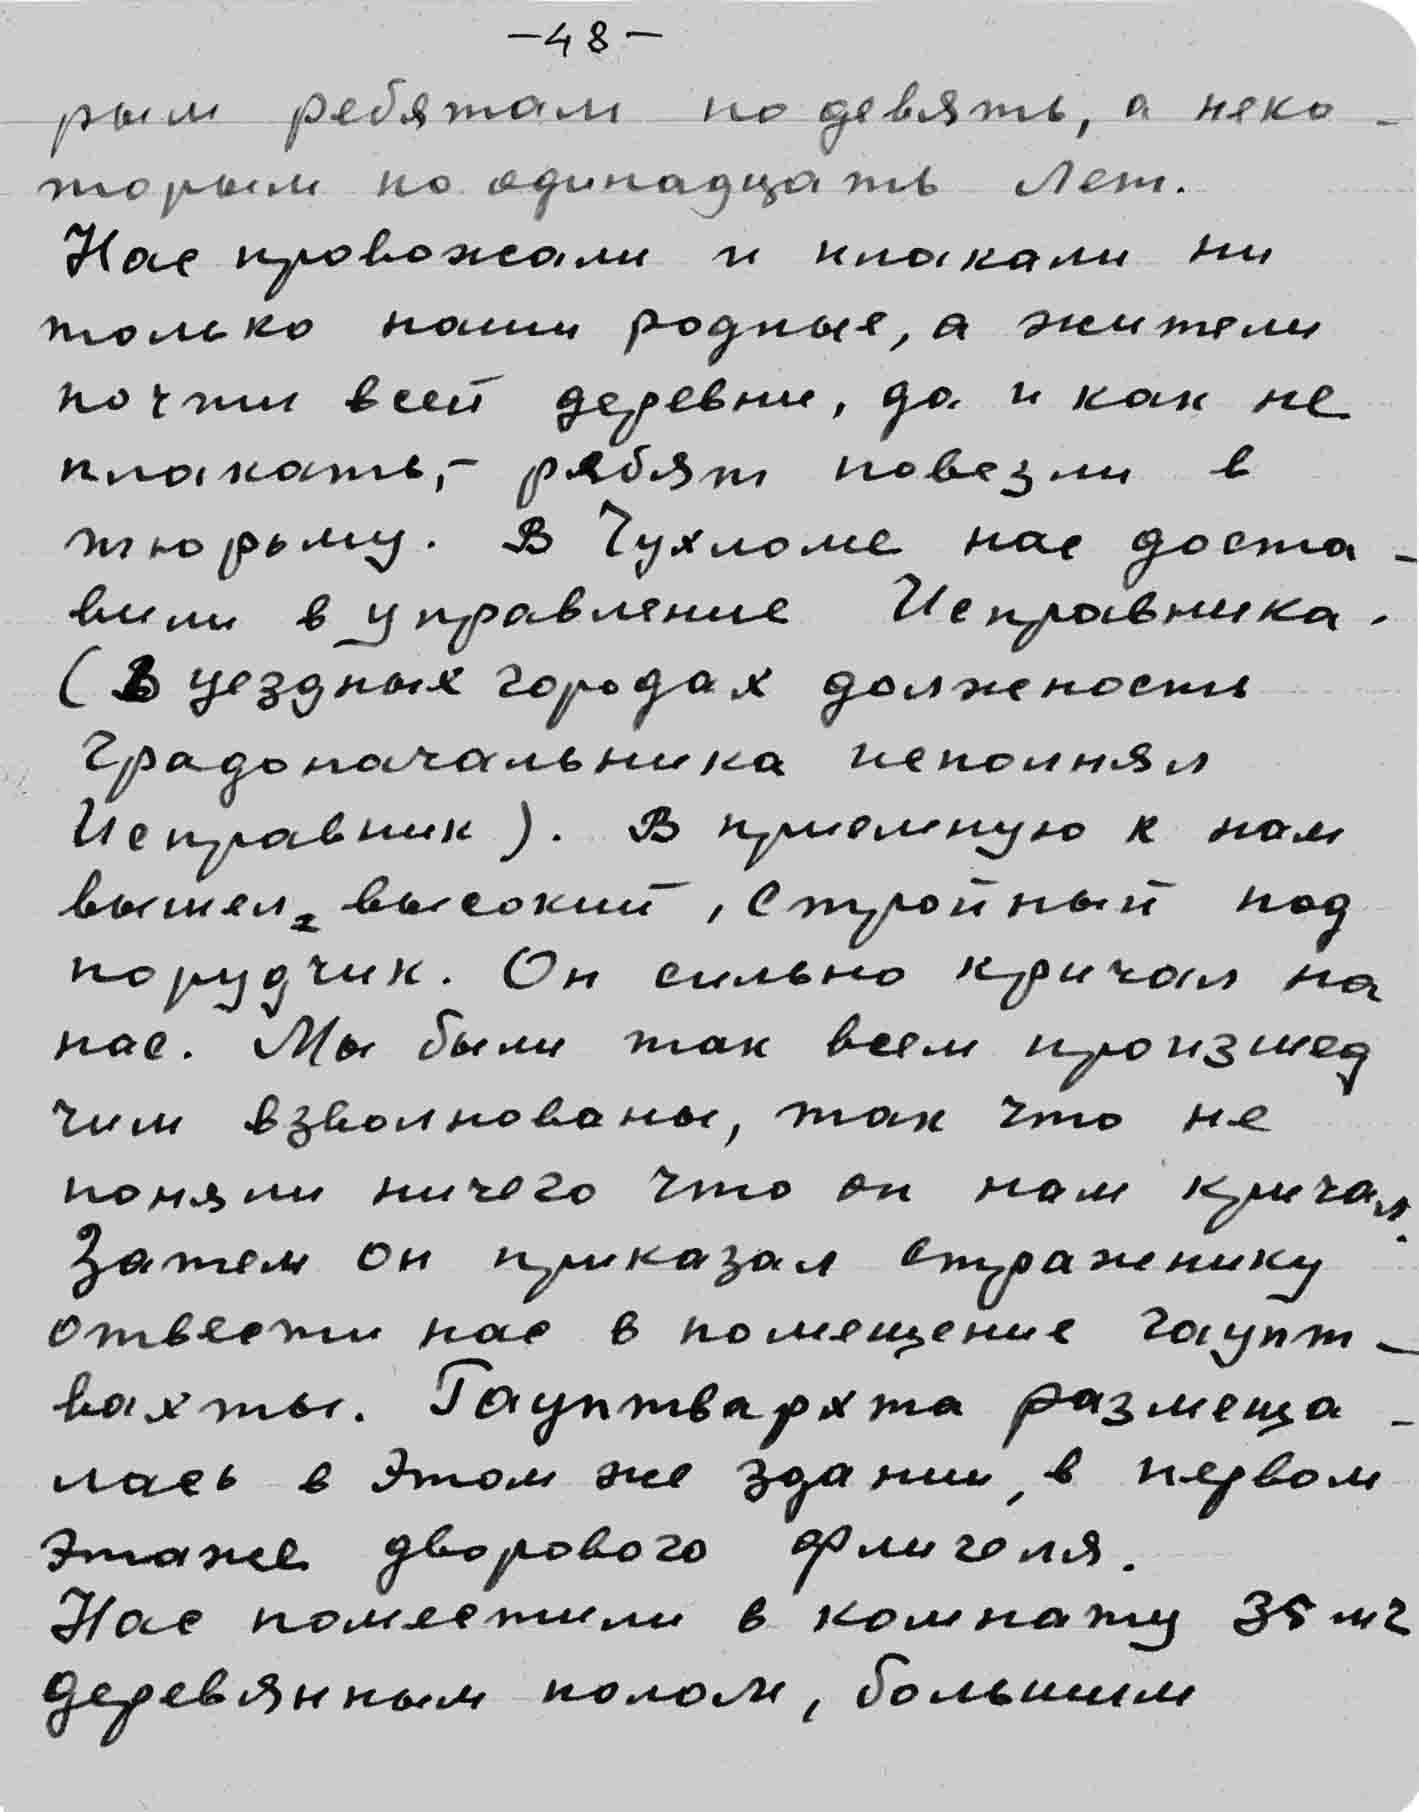 -48-
рым ребятам по девять, а неко-
торым по одинадцать лет.
Нас провожали и плакали ни
только наши родные, а жители
почти всей деревни, да и как не
плакать,- ребят повезли в
тюрьму. В Чухломе нас доста-
вили в управление Исправника.
(В уездных городах долженость
Градоначальника исполнял
Исправник). В приемную к нам
вышел высокий, стройный под
порудчик. Он сильно кричал на
нас. Мы были так всем произшед
чим взволнованы, так что не
поняли ничего что он нам кричал.
Затем он приказал стражнику
отвести нас в помещение гаупт-
вахты. Гауптвархта размеща-
лась в этом же здании, в первом
этаже дворового флигеля.
Нас поместили в комнату 35 м2
деревянным полом, большим